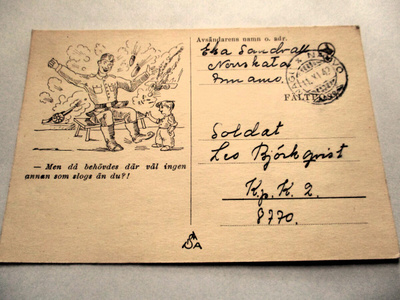 Avsändarens namn o. adr.
Eka Sandvall
Norrskata
FÄLTPOST
— Men då behövdes där väl ingen
annan som slogs än du?!
Soldat
Leo Björkqvist
Kp. K. 2.
8770.